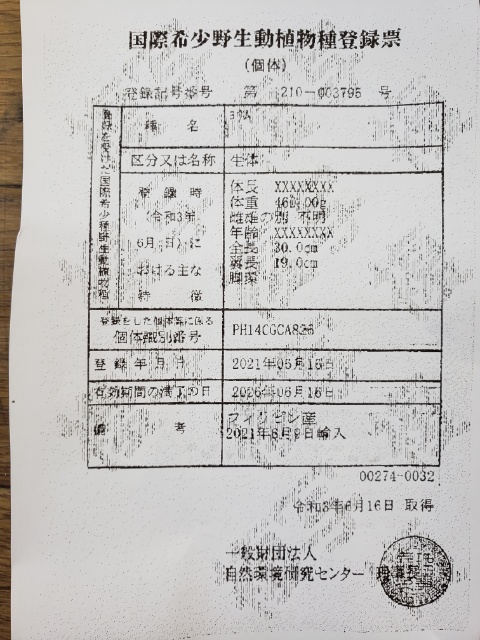 国際希少野生動植物種登録票
(個体)
登録記号番号 第 210-003795 号
登録を受けた国際希少種野生動植物種
種 名 ヨウム
区分又は名称 生体
登録時
(令和3年
6月 日)に
おける主な
特徴
体長 XXXXXXXX
体重 460.00g
雌雄の別 不明
年齢 XXXXXXXX
全長 30.0cm
翼長 19.0cm
脚環
登録をした個体等に係る
個体識別番号 PH14CGCA826
登録年月日 2021年06月16日
有効期間の満了の日 2026年06月16日
備考 フィリピン産
2021年6月9日輸入
00274-0032
令和3年6月16日 取得
一般財団法人
自然環境研究センター